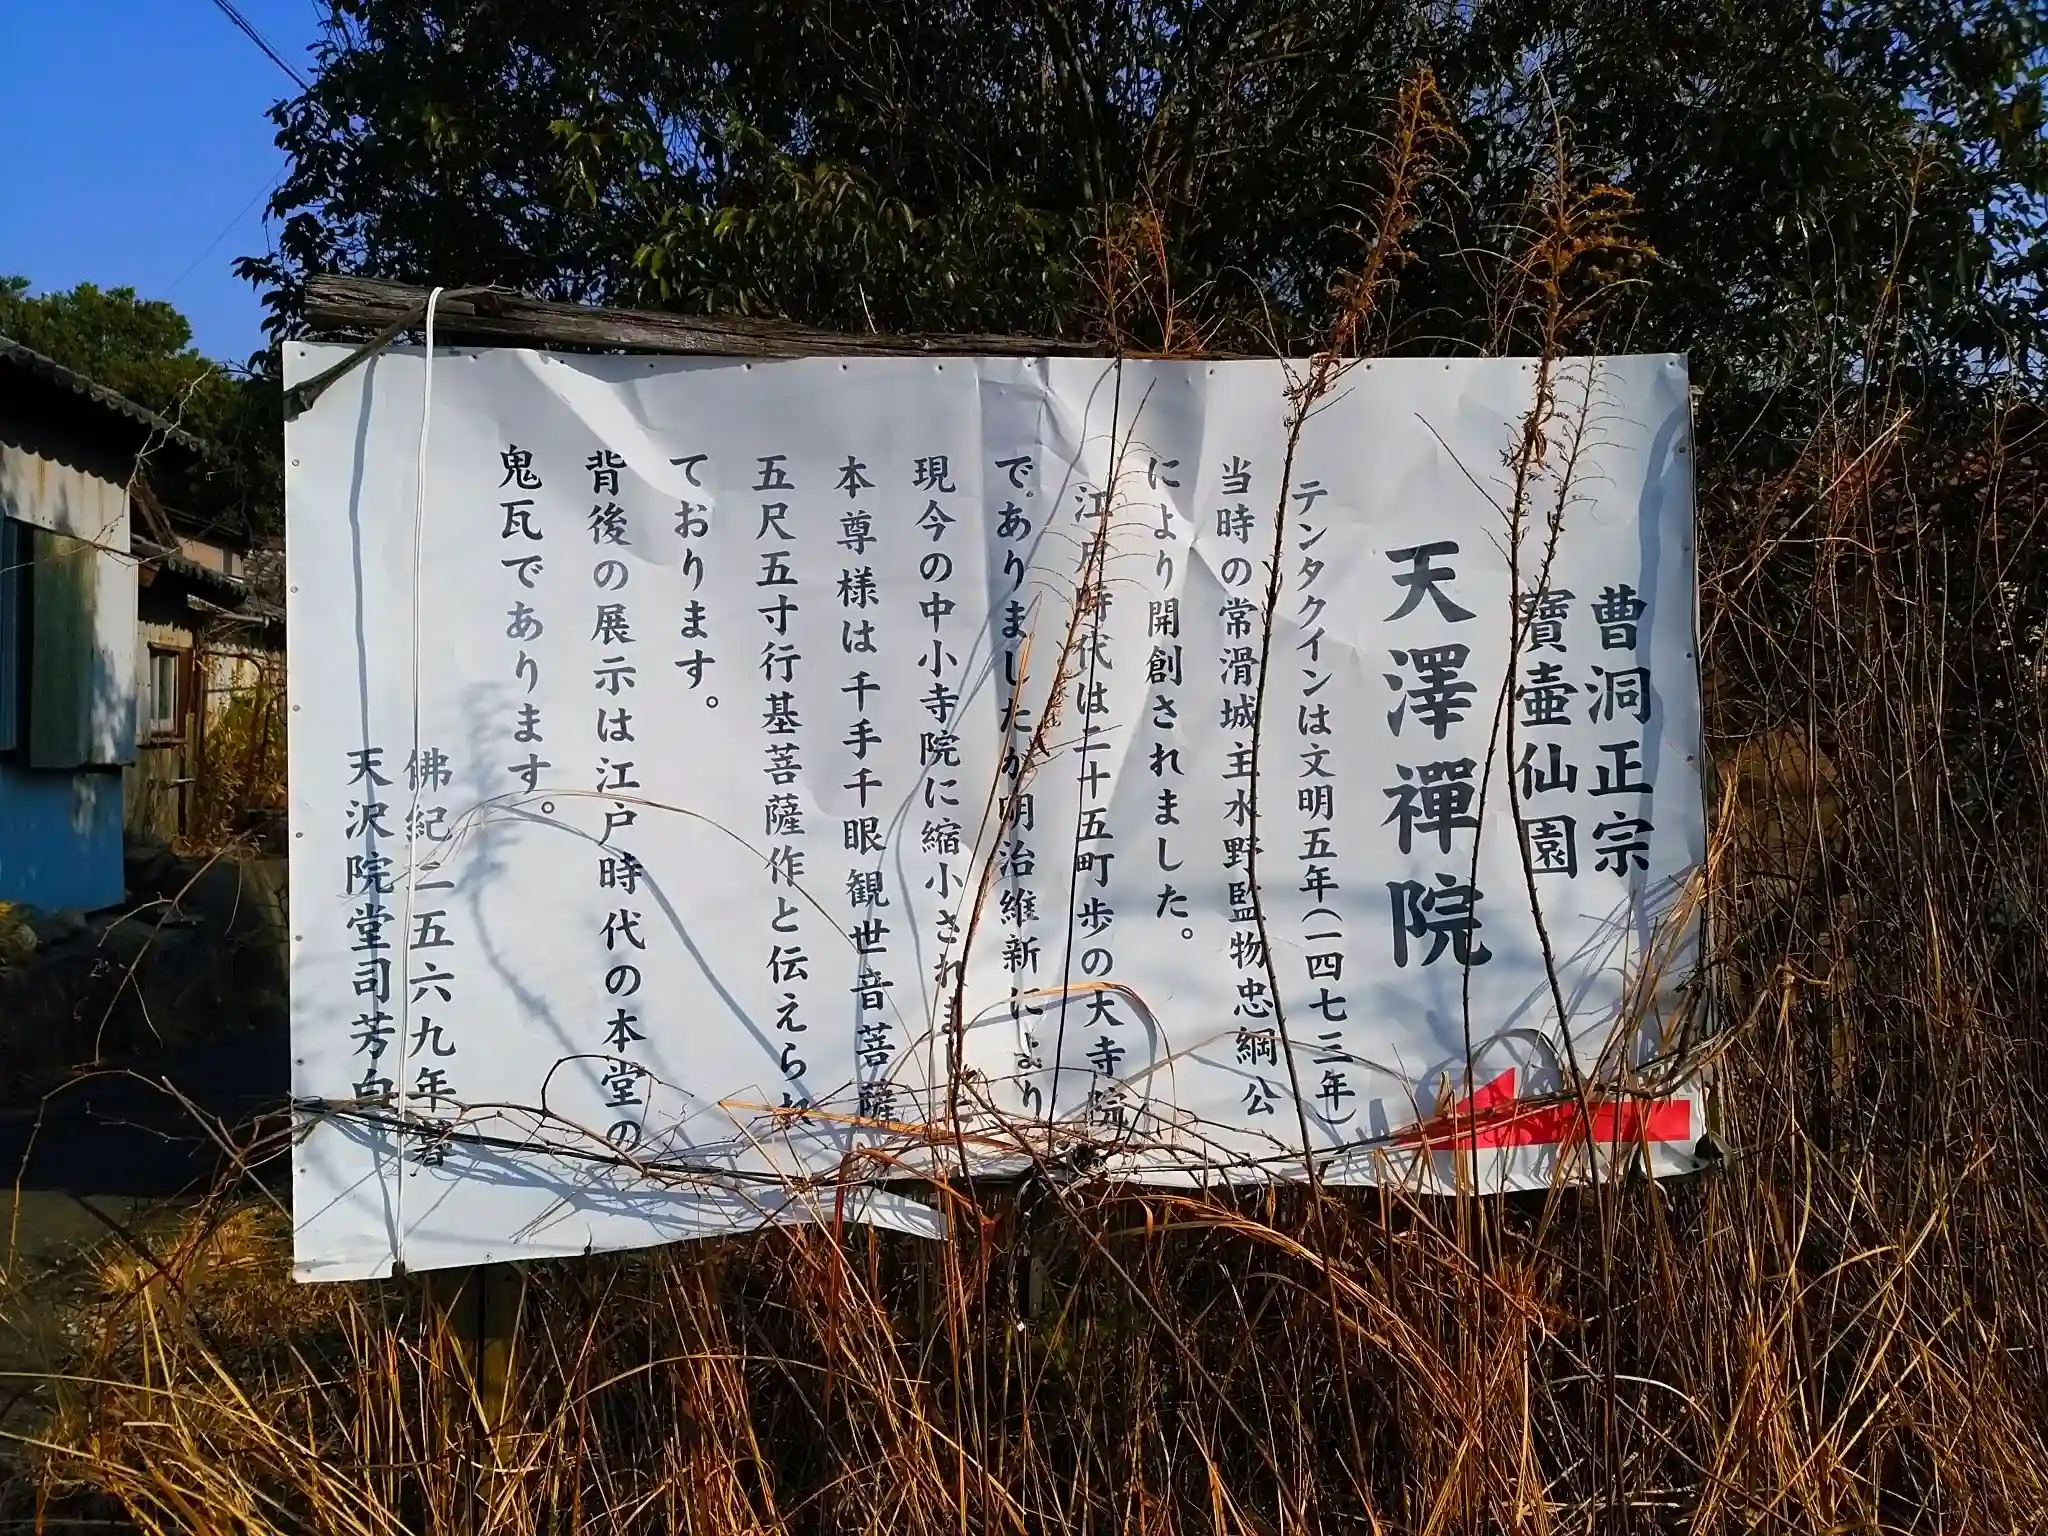 曹洞正宗
寶壷仙園
天澤禪院
テンタクインは文明五年(一四七三年)
当時の常滑城主水野監物忠綱公
により開創されました。
江戸時代は二十五町歩の大寺院
でありましたが明治維新により
現今の中小寺院に縮小されました
本尊様は千手千眼観世音菩薩
五尺五寸行基菩薩作と伝えられ
ております。
背後の展示は江戸時代の本堂の
鬼瓦であります。
佛紀二五六九年春
天沢院堂司芳白